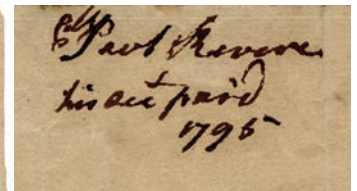 Paul Revere
his acct paid
1795